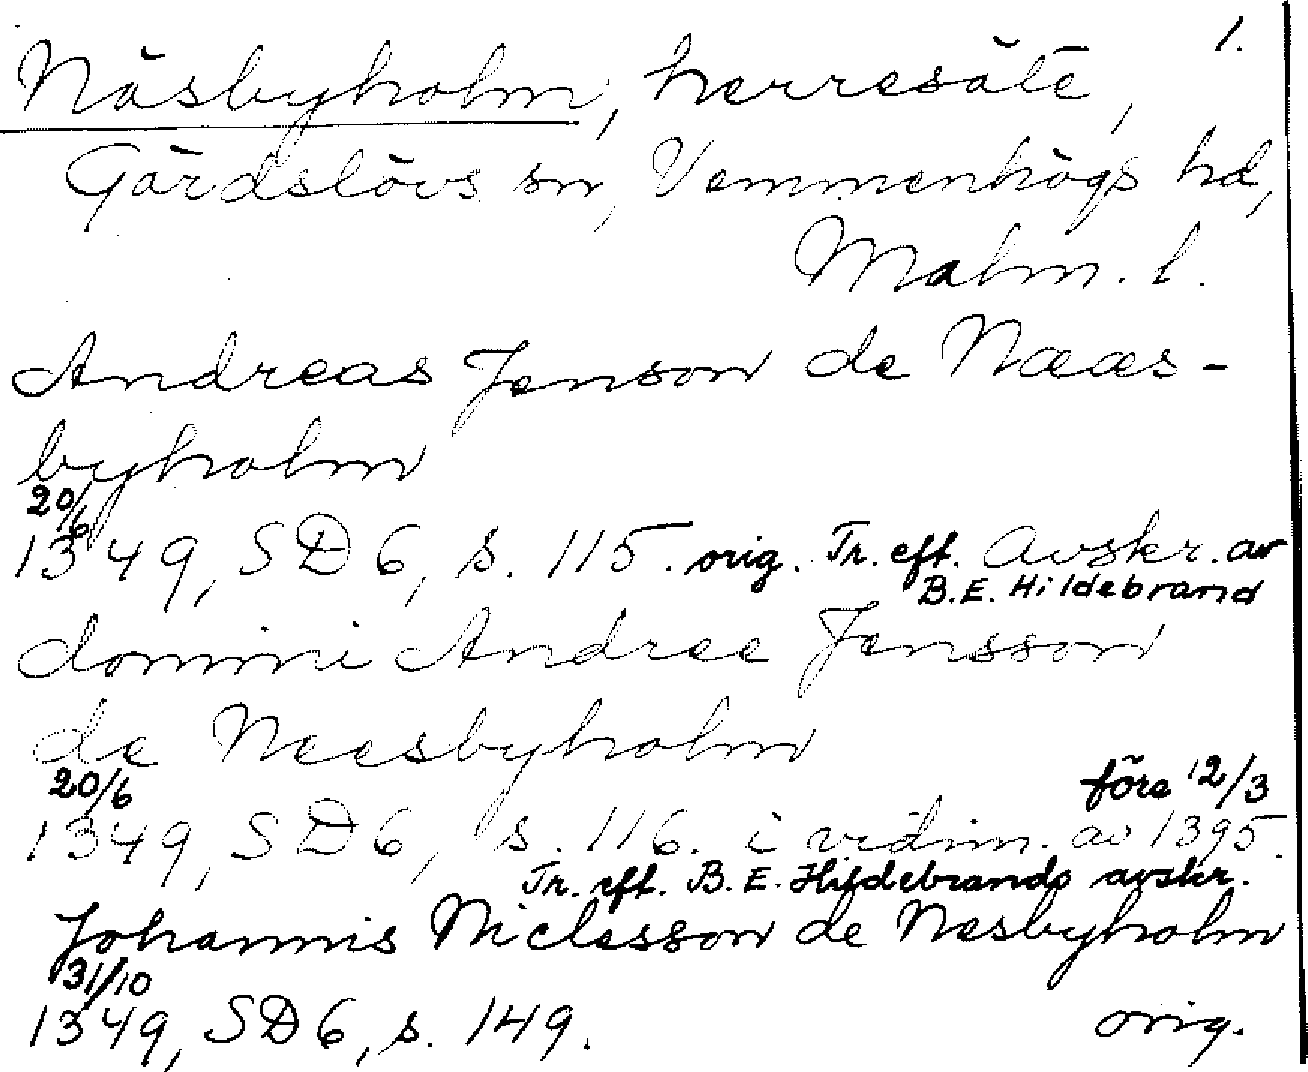 1.
Näsbyholm, herresäte,
Gärdslövs sn, Vemmenhögs hd,
Malm. l.
Andreas Jenson de Næes-
byholm
20/6
1349, SD 6, s. 115. orig. Tr. eft. Avskr. av
B.E. Hildebrand
domini Andree Jensson
de Neesbyholm
20/6 före 12/3
1349, SD 6, s. 116. i vidim. av 1395.
Tr. eft. B. E. Hildebrands avskr.
Johannis Niclesson de Nesbyholm
31/10
1349, SD 6, s. 149. orig.